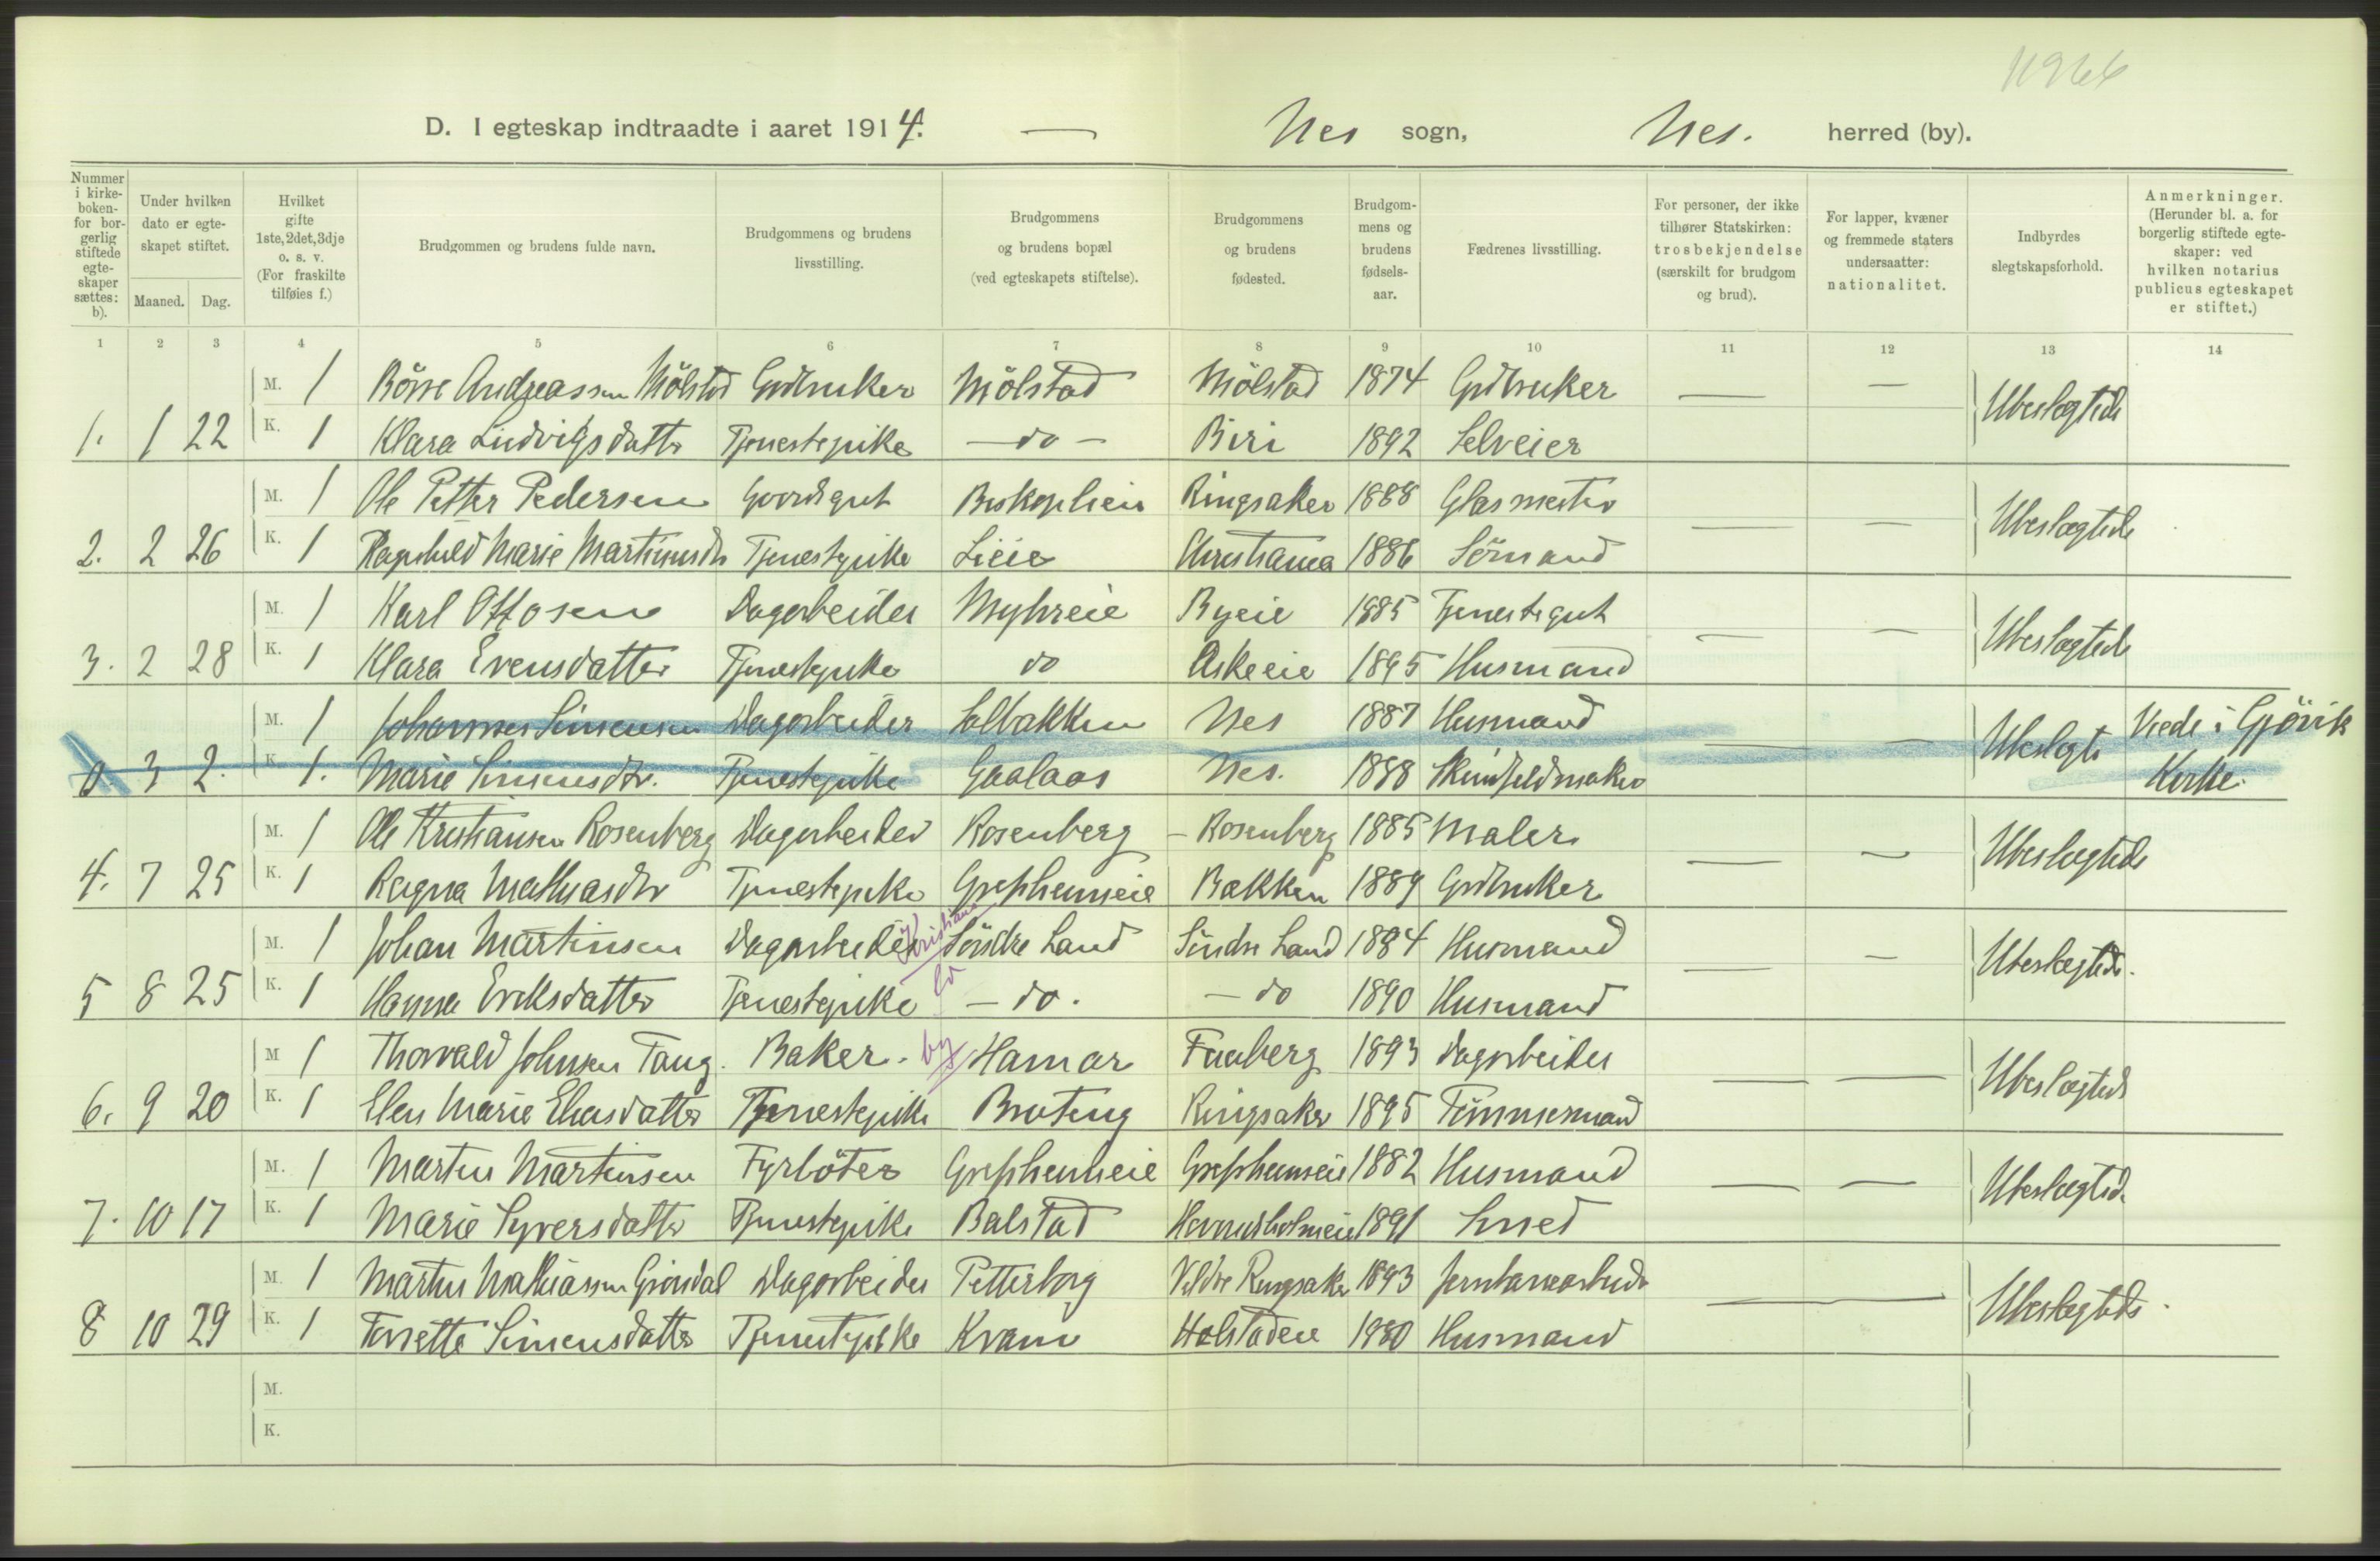 11966
D. I egteskap indtraadte i aaret 1914. — Nes sogn, Nes. herred (by).
Nummer i kirkeboken- for borgerlig stiftede egteskaper sættes: b).
Under hvilken dato er egteskapet stiftet. Maaned. Dag.
Hvilket gifte 1ste, 2det, 3dje o. s. v. (For fraskilte tilføies f.)
Brudgommen og brudens fulde navn.
Brudgommens og brudens livsstilling.
Brudgommens og brudens bopæl (ved egteskapets stiftelse).
Brudgommens og brudens fødested.
Brudgommens og brudens fødselsaar.
Fædrenes livsstilling.
For personer, der ikke tilhører Statskirken: trosbekjendelse (særskilt for brudgom og brud).
For lapper, kvæner og fremmede staters undersaatter: nationalitet.
Indbyrdes slegtskapsforhold.
Anmerkninger. (Herunder bl. a. for borgerlig stiftede egteskaper: ved hvilken notarius publicus egteskapet er stiftet.)
1 2 3 4 5 6 7 8 9 10 11 12 13 14
M. 1 Börre Andreassen Mölstad Grdbruker Mölstad Mölstad 1874 Grdbruker — — Ubeslægtede
1. 1 22 K. 1 Klara Ludvigsdatter Tjenestepike — do — Biri 1892 Selveier
M. 1 Ole Petter Pedersen Gaardsgut Biskoplieie Ringsaker 1888 Glasmester — — Ubeslægtede
2. 2 26 K. 1 Ragnhild Marie Martinusdtr Tjenestepike Lieie Christiania 1886 Sömand
M. 1 Karl Ottosen Dagarbeider Myhreie Byeie 1885 Tjenestegut — — Ubeslægtede
3. 2 28 K. 1 Klara Evensdatter Tjenestepike do Askeeie 1895 Husmand
M. 1 Johannes Simensen Dagarbeider Solbakken Nes 1887 Husmand — — Ubeslegte Viede i Gjövik
0 3 2. K. 1. Marie Simensdtr. Tjenestepike Gaalaas Nes. 1888 Skindfeldmaker Kirke.
M. 1 Ole Kristiansen Rosenberg Dagarbeider Rosenberg — Rosenberg 1885 Maler — — Ubeslægtede
4. 7 25 K. 1 Ragna Mathiasdtr Tjenestepike Grefsheimeie Bakken 1889 Grdbruker
Kristians
M. 1 Johan Martinsen Dagarbeider Söndre Land Söndre Land 1884 Husmand — — Ubeslægtede.
5 8 25 K. 1 Hanna Eriksdatter Tjenestepike — do. — do 1890 Husmand
M 1 Thorvald Johnsen Tang. Baker. by Hamar Faaberg 1893 Dagarbeider — — Ubeslægtede
6. 9 20 K. 1 Elen Marie Eliasdatter Tjenestepike Brateng Ringsaker 1895 Tömmermand
M. 1 Martin Martinsen Fyrböter Grefsheimeie Grefsheimeie 1882 Husmand — — Ubeslægtede
7. 10 17 K. 1 Marie Syversdatter Tjenestepike Balstad 1891 Smed
M. 1 Martin Mathiassen Gröndal Dagarbeider Petterborg Veldre Ringsaker 1893 Jernbanearbeider — Ubeslægtede.
8 10 29 K. 1 Simensdatter Tjenestepike Kvam Holstadeie 1880 Husmand
M.
K.